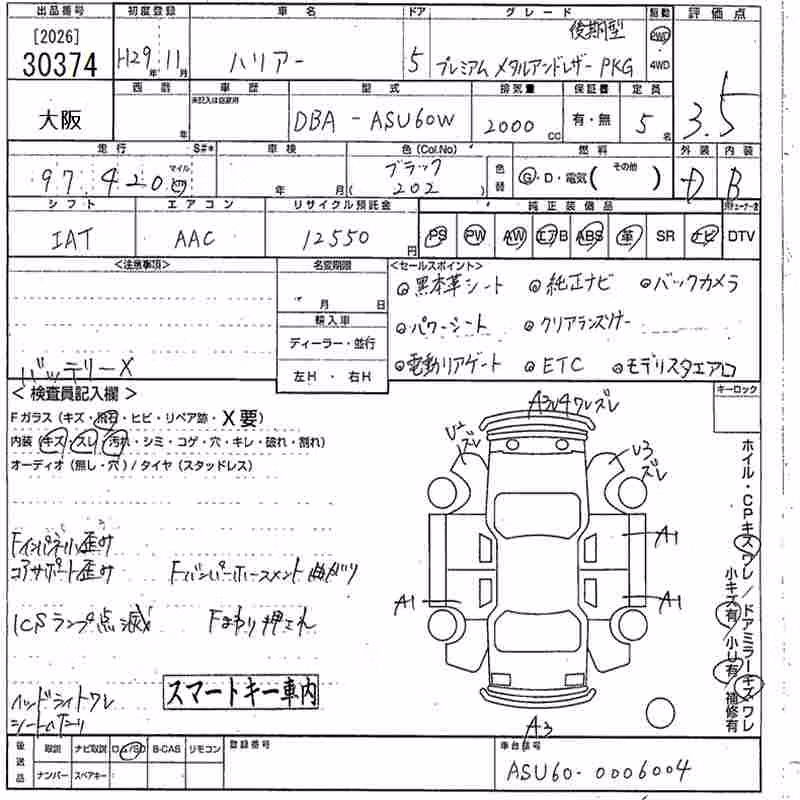 出品番号 初度登録 車名 ドア グレード 駆動 評価点
[2026] 後期型 2WD
30374 H29年 11月 ハリアー 5 プレミアム メタルアンドレザー PKG 4WD 3.5
西暦 車歴 型式 排気量 保証書 定員
未記入は自家用
大阪 年 DBA - ASU60W 2000cc 有・無 5名
走行 S#* 車検 色(Col.No) 燃料 外装 内装
97,420 マイル km 年 月 ブラック (202) 色替 G・D・電気( その他 ) D B
シフト エアコン リサイクル預託金 純正装備品
IAT AAC 12550円 PS PW AW エアB ABS 革 SR ナビ DTV
<注意事項> 名変期限 <セールスポイント>
月 日 黒本革シート 純正ナビ バックカメラ
輸入車 パワーシート クリアランスソナー
ディーラー・並行
バッテリーX 左H・右H 電動リアゲート ETC モデリスタエアロ
<検査員記入欄> キーロック
Fガラス(キズ・飛石・ヒビ・リペア跡・X要)
内装(キズ・スレ・汚れ・シミ・コゲ・穴・キレ・破れ・割れ)
オーディオ(無し・穴)/タイヤ(スタッドレス)
A3U4ワレズレ
U2ズレ
U3ズレ
A1
A1
A1
A3
Fインパネル歪み
コアサポート歪み Fバンパーホースメント曲ガリ
ICSランプ点滅 Fまわり押され
ヘッドライトワレ
スマートキー車内
ホイル・CPキズワレ/ドアミラーキズワレ
小キズ有/小U有/補修有
後送品 取説 ナビ取説 ロム/SD B-CAS リモコン 登録番号 車台番号
ナンバー スペアキー ASU60-0006004